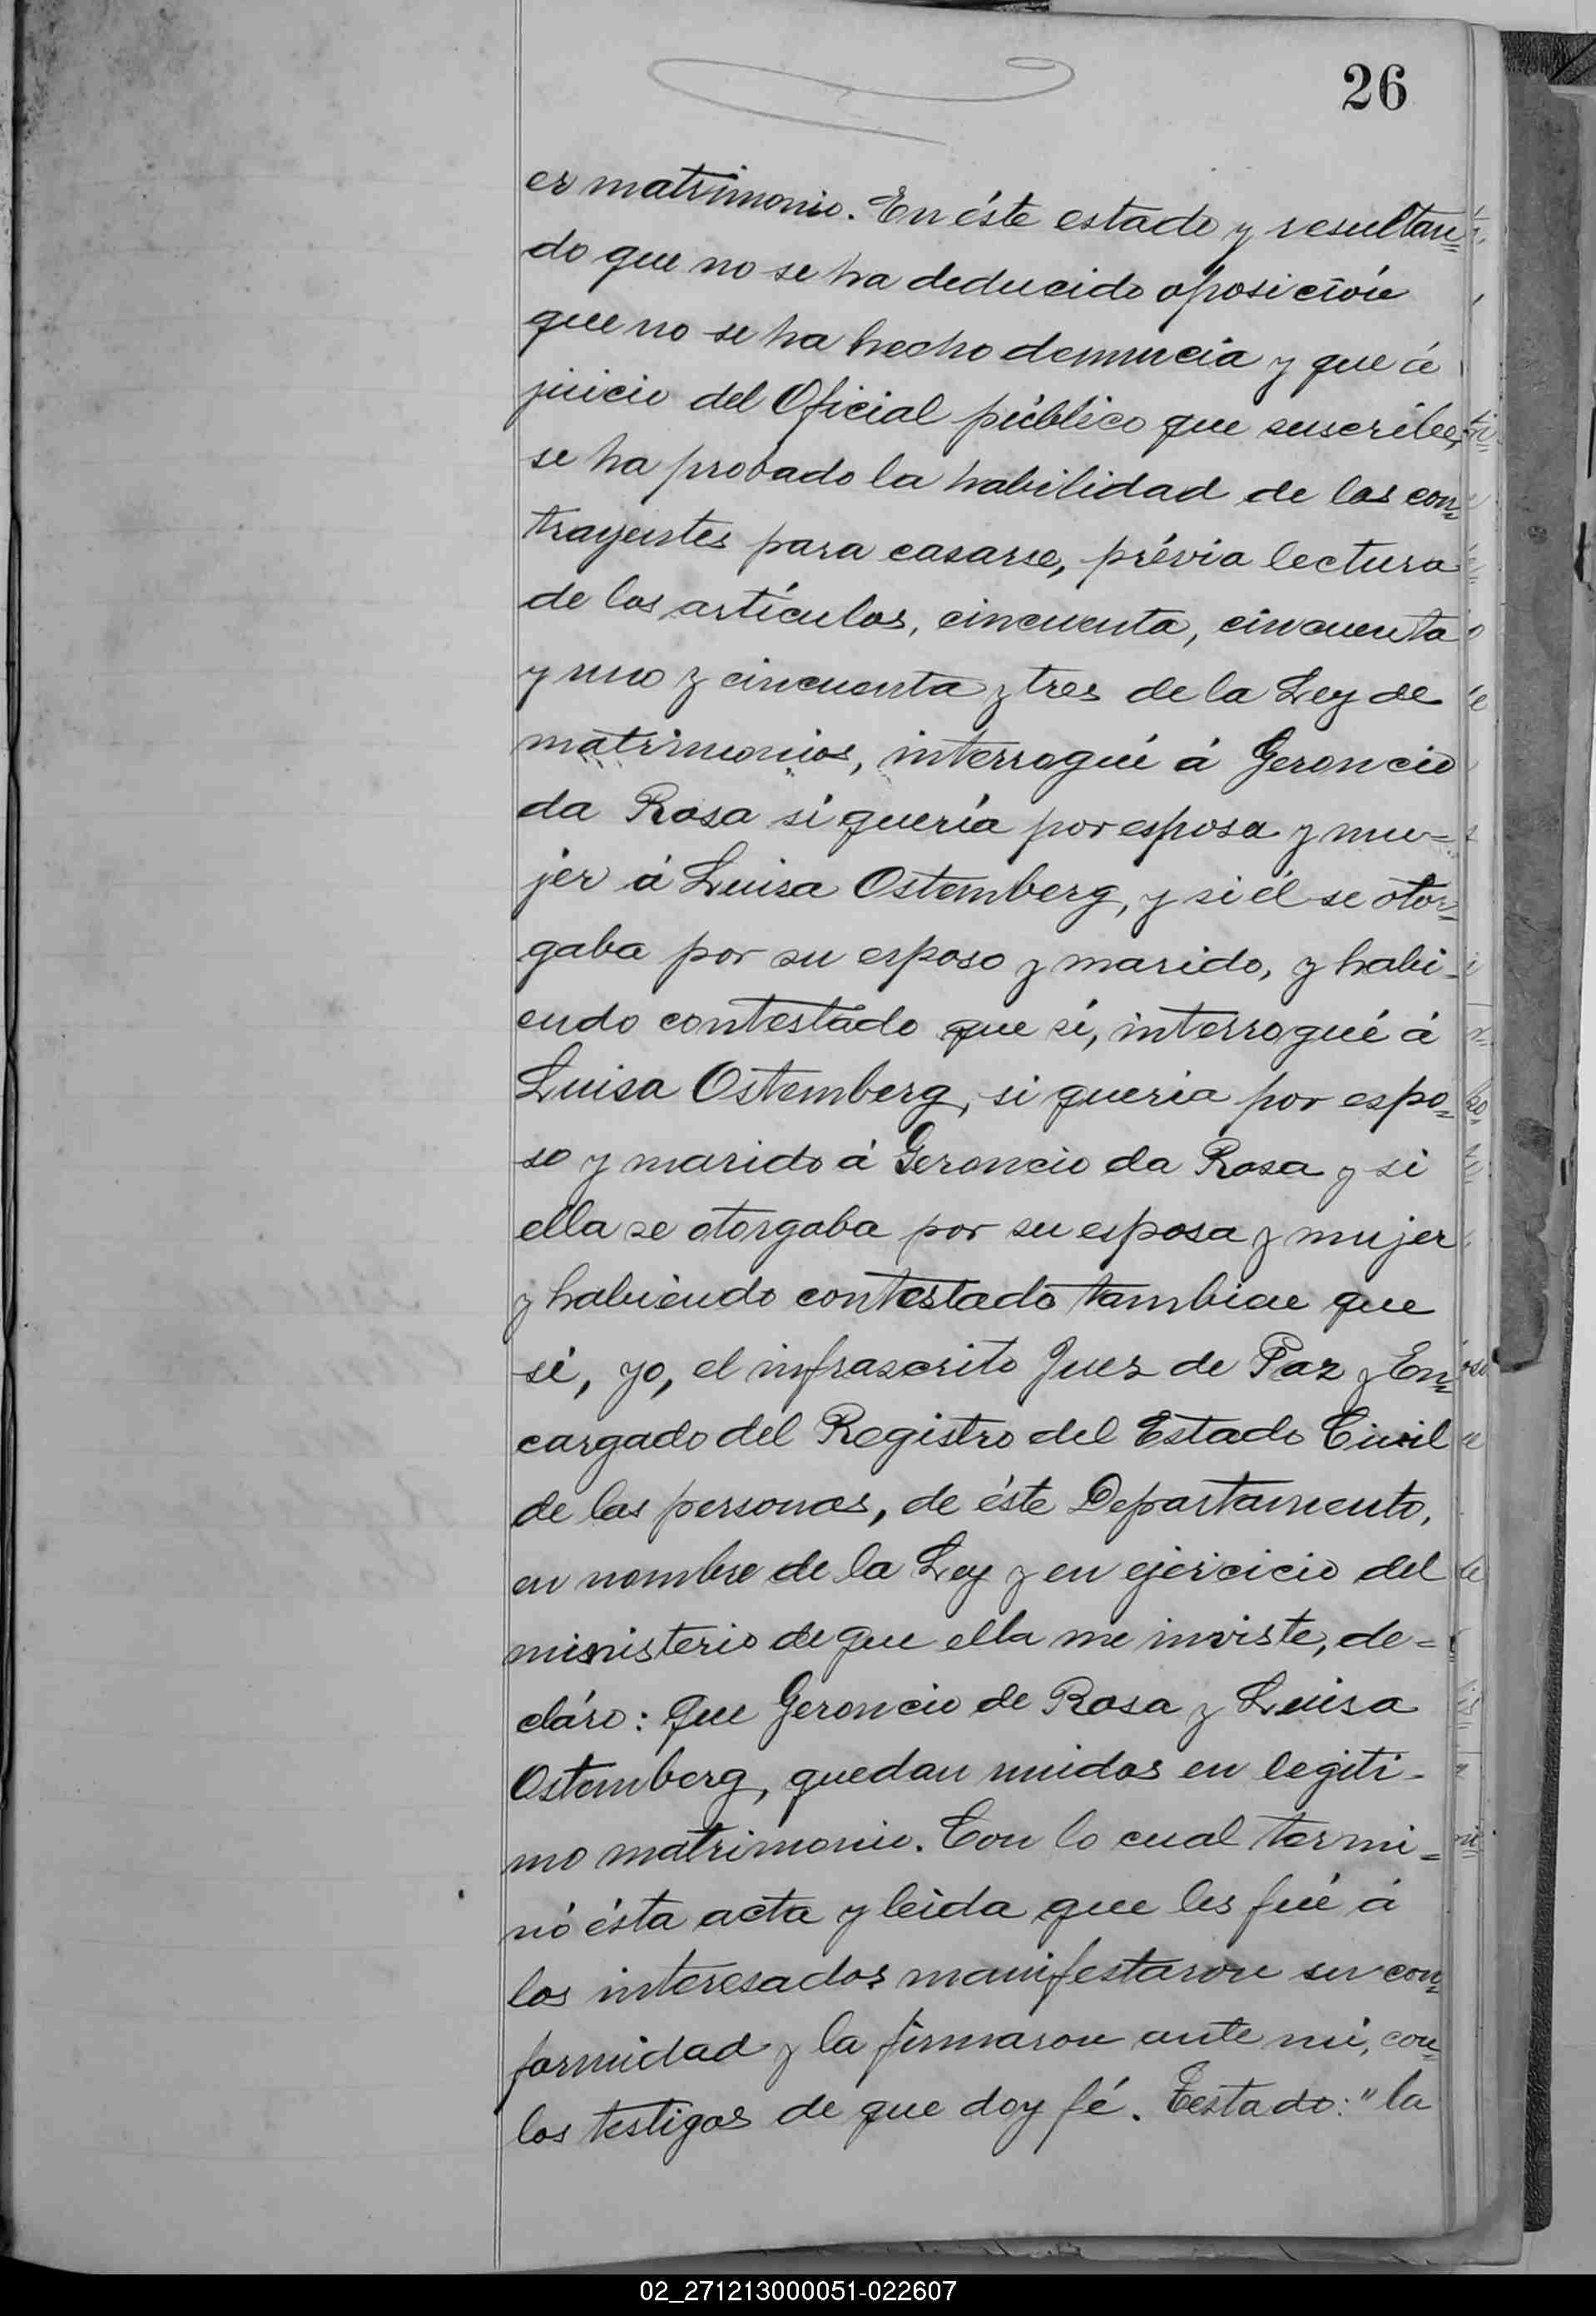 26
er matrimonio. En éste estado y resultan=
do que no se ha deducido oposición
que no se ha hecho denuncia y que á
juicio del Oficial público que suscribe,
se ha probado la habilidad de los con=
trayentes para casarse, prévia lectura
de los artículos, cincuenta, cincuenta
y uno y cincuenta y tres de la Ley de
matrimonios, interrogué á Geroncio
da Rosa si quería por esposa y mu=
jer á Luisa Ostemberg, y si él se otor=
gaba por su esposo y marido, y habi-
endo contestado que sí, interrogué á
Luisa Ostemberg, si queria por espo=
so y marido á Geroncio da Rosa y si
ella se otorgaba por su esposa y mujer
y habiendo contestado tambien que
sí, yo, el infrascrito Juez de Paz y En=
cargado del Registro del Estado Civil
de las personas, de éste Departamento,
en nombre de la Ley y en ejercicio del
ministerio de que ella me inviste, de=
cláro: que Geroncio de Rosa y Luisa
Ostemberg, quedan unidos en legiti-
mo matrimonio. Con lo cual termi=
nó ésta acta y leida que les fué á
los interesados manifestaron su con=
formidad y la firmaron ante mi, con
los testigos de que doy fé. Testado: "la
02_271213000051-022607